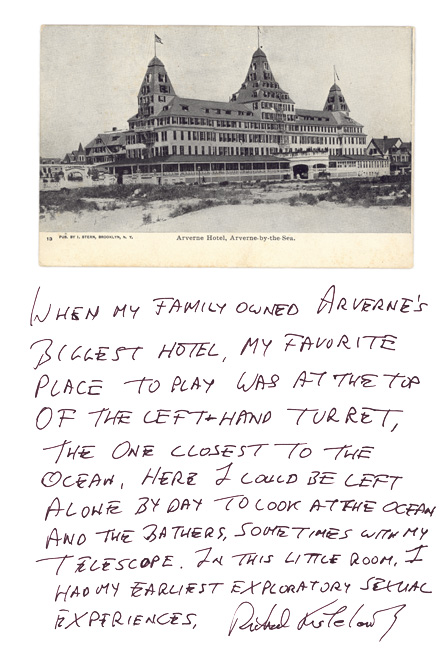 13 PUB. BY I. STERN, BROOKLYN, N. Y. Arverne Hotel, Arverne-by-the-Sea.
WHEN MY FAMILY OWNED ARVERNE'S
BIGGEST HOTEL, MY FAVORITE
PLACE TO PLAY WAS AT THE TOP
OF THE LEFT-HAND TURRET,
THE ONE CLOSEST TO THE
OCEAN. HERE I COULD BE LEFT
ALONE BY DAY TO LOOK AT THE OCEAN
AND THE BATHERS, SOMETIMES WITH MY
TELESCOPE. IN THIS LITTLE ROOM, I
HAD MY EARLIEST EXPLORATORY SEXUAL
EXPERIENCES. Richard